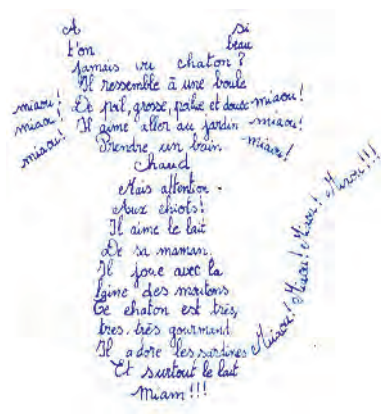 A si
t'on beau
jamais vu chaton ?
Il ressemble à une boule
miaou! De poil, grosse, polie et douce miaou!
miaou! Il aime aller au jardin miaou!
miaou! Prendre un bain miaou!
Chaud
Mais attention
Aux chiots!
Il aime le lait
De sa maman.
Il joue avec la
laine des moutons
Ce chaton est très,
très, très gourmand
Il adore les sardines
Et surtout le lait
Miam !!!
Miaou! Miaou! Miaou! Miaou!!!